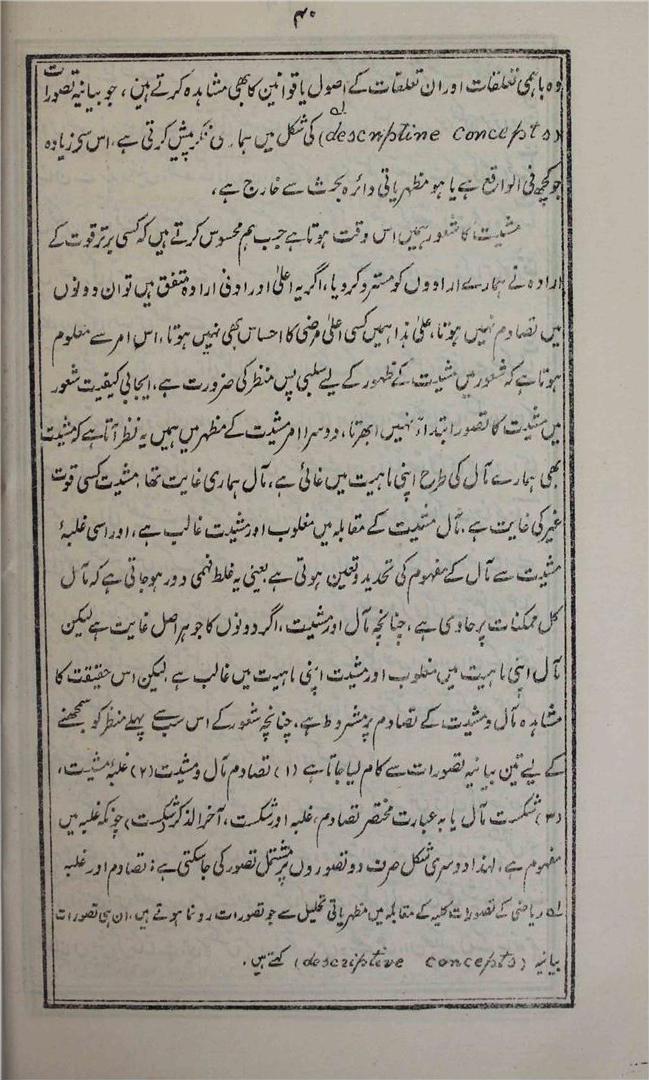 ۴۰
وہ باہمی تعلقات اور ان تعلقات کے اصول یا قوانین کا بھی مشاہدہ کرتے ہین، جو بیانیہ تصورات
(descriptine concepts) لہ کی شکل میں ہماری فکر پیش کرتی ہے، اس سے زیادہ
جو کچھ فی الواقع ہے یا ہو مظہریاتی دائرہ بحث سے خارج ہے،
مشیت کا شعور ہمیں اس وقت ہوتا ہے جب ہم محسوس کرتے ہیں کہ کسی برتر قوت کے
ارادہ نے ہمارے ارادوں کو مسترد کر دیا، اگر یہ اعلیٰ اور ادنی ارادہ متفق ہیں تو ان دونوں
میں تصادم نہیں ہوتا، علیٰ ہذا ہمیں کسی اعلیٰ مرضی کا احساس بھی نہیں ہوتا، اس امر سے معلوم
ہوتا ہے کہ شعور میں مشیت کے ظہور کے لیے سلبی پس منظر کی ضرورت ہے، ایجابی کیفیت شعور
میں مشیت کا تصور ابتداءً نہیں ابھرتا، دوسرا امر مشیت کے مظہر میں ہمیں یہ نظر آتا ہے کہ مشیت
بھی ہمارے مآل کی طرح اپنی ماہیت میں غائی ہے، مآل ہماری غایت تھا، مشیت کسی قوت
غیر کی غایت ہے، مآل مشیت کے مقابلہ میں مغلوب اور مشیت غالب ہے، اور اسی غلبۂ
مشیت سے مآل کے مفہوم کی تحدید و تعین ہوتی ہے یعنی یہ غلط فہمی دور ہو جاتی ہے کہ مآل
کل ممکنات پر حاوی ہے، چنانچہ مآل اور مشیت، اگر دونوں کا جوہر اصل غایت ہے لیکن
مآل اپنی ماہیت میں مغلوب اور مشیت اپنی ماہیت میں غالب ہے لیکن اس حقیقت کا
مشاہدہ مآل و مشیت کے تصادم پر مشروط ہے، چنانچہ شعور کے اس سب سے پہلے منظر کو سمجھنے
کے لیے تین بیانیہ تصورات سے کام لیا جاتا ہے (۱) تصادم مآل و مشیت (۲) غلبۂ مشیت،
(۳) شکست مآل یا بہ عبارت مختصر تصادم، غلبہ اور شکست، آخر الذکر (شکست) چونکہ غلبہ میں
مفہوم ہے، لہذا دوسری شکل صرف دو تصوروں پر مشتمل تصور کی جا سکتی ہے: تصادم اور غلبہ
لہ ریاضی کے تصورات کلیہ کے مقابلہ میں مظہریاتی تحلیل سے جو تصورات رونما ہوتے ہیں، ان ہی تصورات
بیانیہ (descriptive concepts) کہتے ہیں.